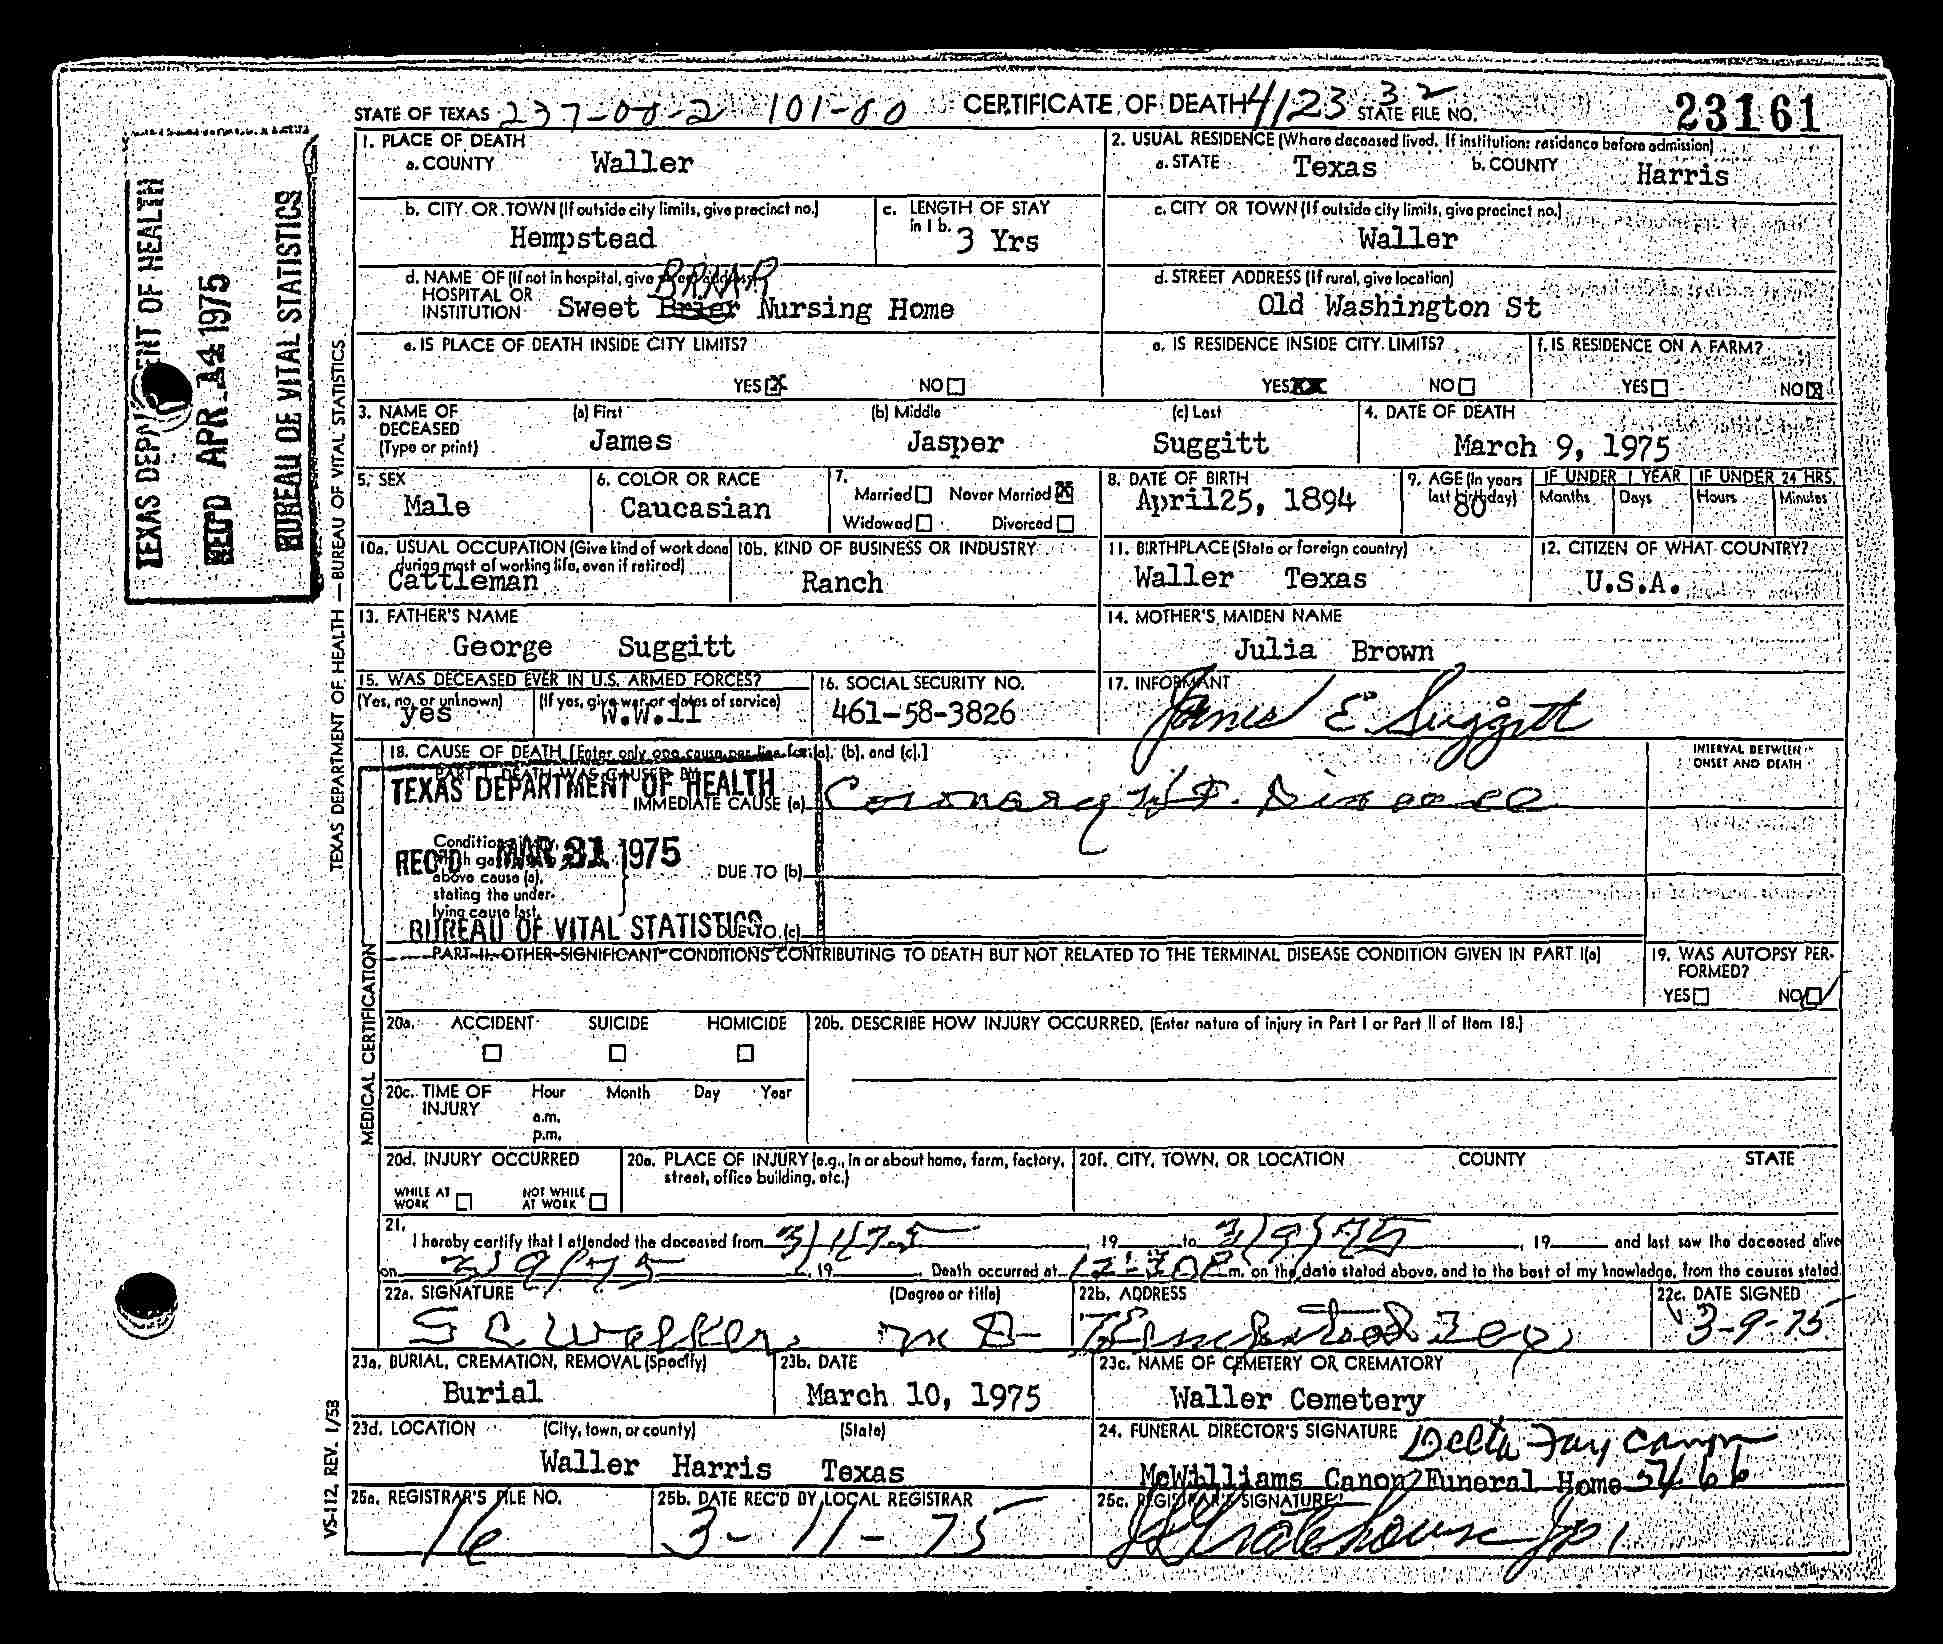 STATE OF TEXAS 237-00-2 101-80 CERTIFICATE OF DEATH 4/23 32 STATE FILE NO. 23161
TEXAS DEPARTMENT OF HEALTH
REC'D APR 14 1975
BUREAU OF VITAL STATISTICS
TEXAS DEPARTMENT OF HEALTH — BUREAU OF VITAL STATISTICS
1. PLACE OF DEATH
a. COUNTY Waller
2. USUAL RESIDENCE (Where deceased lived. If institution: residence before admission)
a. STATE Texas b. COUNTY Harris
b. CITY OR TOWN (If outside city limits, give precinct no.)
Hempstead
c. LENGTH OF STAY in 1 b.
3 Yrs
c. CITY OR TOWN (If outside city limits, give precinct no.)
Waller
d. NAME OF (If not in hospital, give
HOSPITAL OR
INSTITUTION Sweet Brier Nursing Home
BRIAR
d. STREET ADDRESS (If rural, give location)
Old Washington St
e. IS PLACE OF DEATH INSIDE CITY LIMITS?
YES X NO
e. IS RESIDENCE INSIDE CITY LIMITS?
YES XX NO
f. IS RESIDENCE ON A FARM?
YES NO X
3. NAME OF DECEASED (Type or print)
(a) First (b) Middle (c) Last
James Jasper Suggitt
4. DATE OF DEATH
March 9, 1975
5. SEX
Male
6. COLOR OR RACE
Caucasian
7. Married Never Married X
Widowed Divorced
8. DATE OF BIRTH
April25, 1894
9. AGE (In years last birthday)
80
IF UNDER 1 YEAR IF UNDER 24 HRS.
Months Days Hours Minutes
10a. USUAL OCCUPATION (Give kind of work done during most of working life, even if retired)
Cattleman
10b. KIND OF BUSINESS OR INDUSTRY
Ranch
11. BIRTHPLACE (State or foreign country)
Waller Texas
12. CITIZEN OF WHAT COUNTRY?
U.S.A.
13. FATHER'S NAME
George Suggitt
14. MOTHER'S MAIDEN NAME
Julia Brown
15. WAS DECEASED EVER IN U.S. ARMED FORCES?
(Yes, no, or unknown) (If yes, give war or dates of service)
yes W.W.11
16. SOCIAL SECURITY NO.
461-58-3826
17. INFORMANT
James E. Suggitt
MEDICAL CERTIFICATION
18. CAUSE OF DEATH [Enter only one cause per line for (a), (b), and (c).]
INTERVAL BETWEEN ONSET AND DEATH
PART I. DEATH WAS CAUSED BY:
TEXAS DEPARTMENT OF HEALTH
IMMEDIATE CAUSE (a) Coronary Ht. Disease
Conditions, if any,
which gave rise to
above cause (a),
stating the under-
lying cause last.
REC'D MAR 31 1975
DUE TO (b)
BUREAU OF VITAL STATISTICS
DUE TO (c)
PART II. OTHER SIGNIFICANT CONDITIONS CONTRIBUTING TO DEATH BUT NOT RELATED TO THE TERMINAL DISEASE CONDITION GIVEN IN PART I(a)
19. WAS AUTOPSY PER-
FORMED?
YES NO
20a. ACCIDENT SUICIDE HOMICIDE
20b. DESCRIBE HOW INJURY OCCURRED. (Enter nature of injury in Part I or Part II of Item 18.)
20c. TIME OF INJURY Hour Month Day Year
a.m.
p.m.
20d. INJURY OCCURRED
WHILE AT WORK NOT WHILE AT WORK
20e. PLACE OF INJURY (e.g., in or about home, farm, factory, street, office building, etc.)
20f. CITY, TOWN, OR LOCATION COUNTY STATE
21.
I hereby certify that I attended the deceased from 3/1/75, 19 to 3/9/75, 19 and last saw the deceased alive
on 3/9/75, 19 . Death occurred at 12:30P m. on the date stated above, and to the best of my knowledge, from the causes stated.
22a. SIGNATURE (Degree or title)
S C Walker MD
22b. ADDRESS
Hempstead Tex.
22c. DATE SIGNED
3-9-75
23a. BURIAL, CREMATION, REMOVAL (Specify)
Burial
23b. DATE
March 10, 1975
23c. NAME OF CEMETERY OR CREMATORY
Waller Cemetery
23d. LOCATION (City, town, or county) (State)
Waller Harris Texas
24. FUNERAL DIRECTOR'S SIGNATURE Delta Fay Canon
McWilliams Canon Funeral Home 5466
25a. REGISTRAR'S FILE NO.
16
25b. DATE REC'D BY LOCAL REGISTRAR
3-11-75
25c. REGISTRAR'S SIGNATURE
VS-112, REV. 1/58